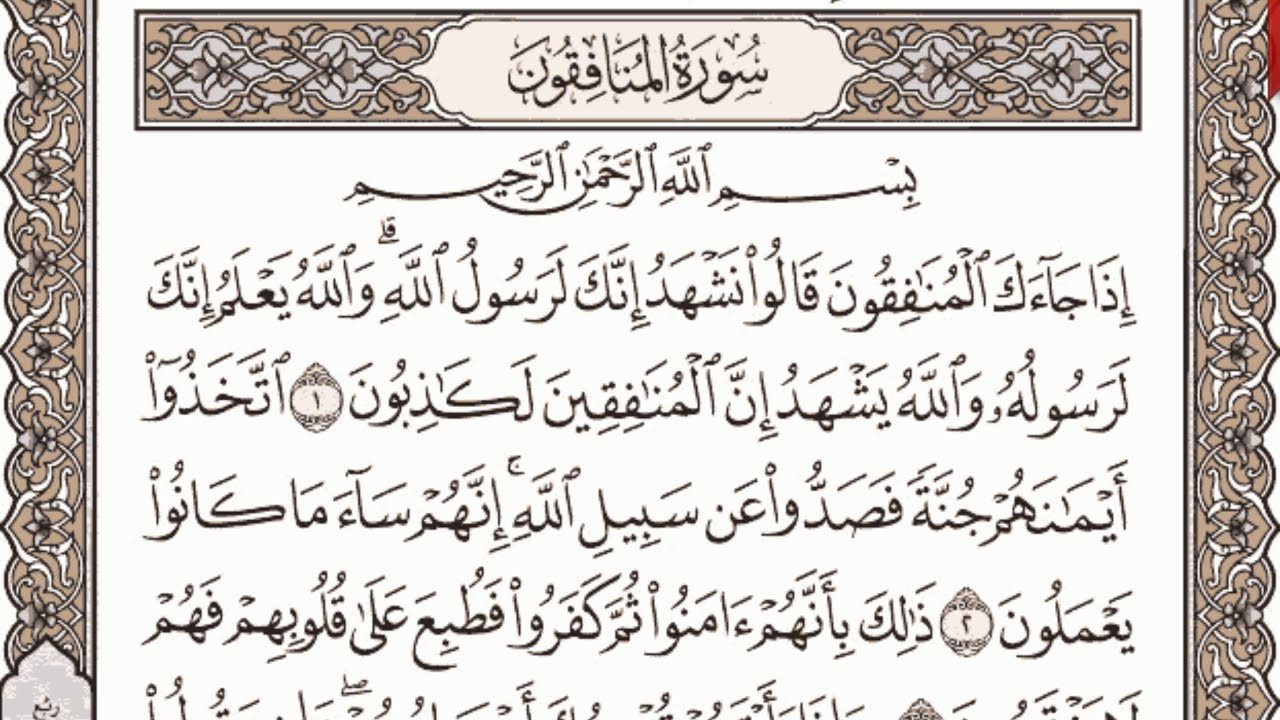 سُورَةُ المُنَافِقُونَ
بِسۡمِ ٱللَّهِ ٱلرَّحۡمَٰنِ ٱلرَّحِيمِ
إِذَا جَآءَكَ ٱلۡمُنَٰفِقُونَ قَالُواْ نَشۡهَدُ إِنَّكَ لَرَسُولُ ٱللَّهِۗ وَٱللَّهُ يَعۡلَمُ إِنَّكَ
لَرَسُولُهُۥ وَٱللَّهُ يَشۡهَدُ إِنَّ ٱلۡمُنَٰفِقِينَ لَكَٰذِبُونَ ١ ٱتَّخَذُوٓاْ
أَيۡمَٰنَهُمۡ جُنَّةٗ فَصَدُّواْ عَن سَبِيلِ ٱللَّهِۚ إِنَّهُمۡ سَآءَ مَا كَانُواْ
يَعۡمَلُونَ ٢ ذَٰلِكَ بِأَنَّهُمۡ ءَامَنُواْ ثُمَّ كَفَرُواْ فَطُبِعَ عَلَىٰ قُلُوبِهِمۡ فَهُمۡ